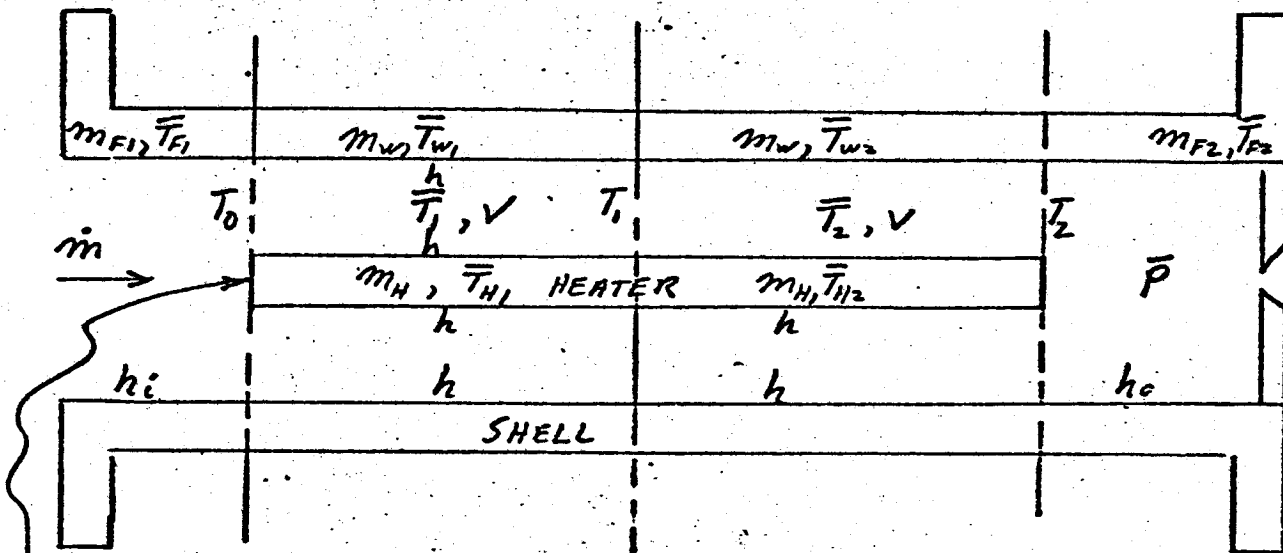 m_F1, T̿_F1 m_w, T̿_w1 m_w, T̿_w2 m_F2, T̿_F2
h
T_0 T̿_1, V T_1 T̿_2, V T_2
h
ṁ
m_H, T̿_H1 HEATER m_H, T̿_H2 P̄
h h
h_i h h h_o
SHELL